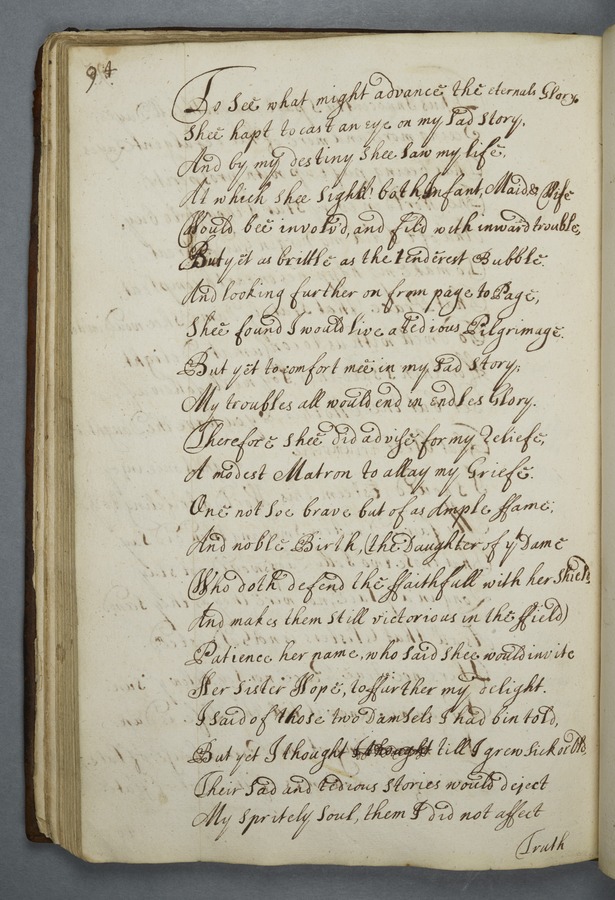 94
To See what might advance the eternals Glory,
Shee hapt to cast an eye on my Sad Story,
And by my destiny Shee Saw my life,
At which Shee Sight! both Infant, Maid & Wife
Would bee involv'd, and fild with inward trouble,
But yet as brittle as the tenderest Bubble.
And looking further on from page to Page,
Shee found I would live a tedious Pilgrimage.
But yet to comfort mee in my Sad Story,
My troubles all would end in endles Glory.
Therefore Shee did advise for my Reliefe,
A modest Matron to allay my Griefe.
One not Soe brave but of as Ample ffame,
And noble Birth, (the Daughter of yt Dame
Who doth defend the ffaithfull with her Shield
And makes them Still victorious in the ffield)
Patience her name, who Said Shee would invite
Her Sister Hope, to ffurther my delight.
I Said of those two Damsels I had bin told,
But yet I thought I thought till I grew Sick or Old
Their Sad and tedious Stories would deject
My Spritely Soul, them I did not affect
Truth